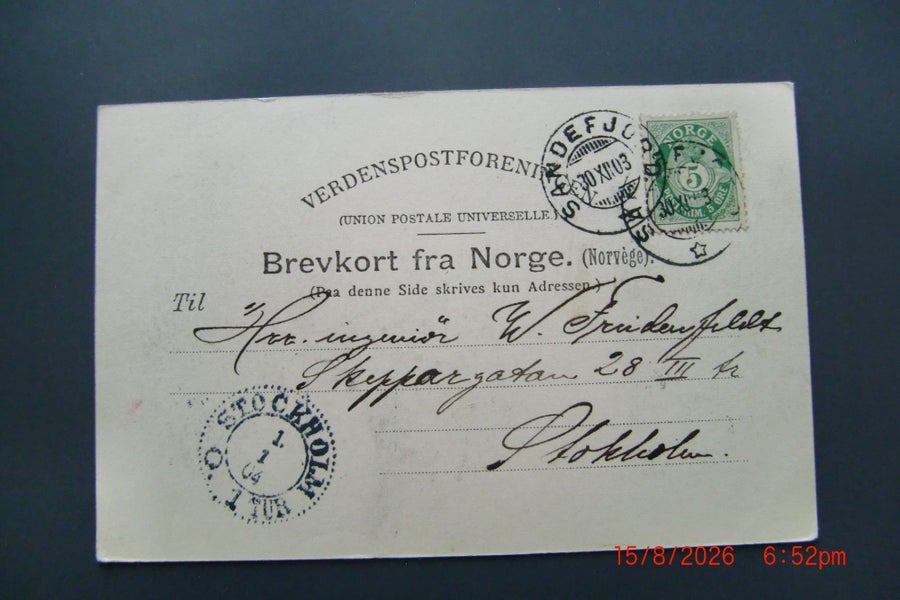 VERDENSPOSTFORENIN
(UNION POSTALE UNIVERSELLE.)
Brevkort fra Norge. (Norvège).
(Paa denne Side skrives kun Adressen.)
SANDEFJORD
30 XII 03
NORGE
5
5 ØRE
Til
Hrr. ingeniör W. Frudenfeldt
Skeppargatan 28 III tr
Stokholm.
STOCKHOLM
1
1
04
1 TUR
15/8/2026 6:52pm